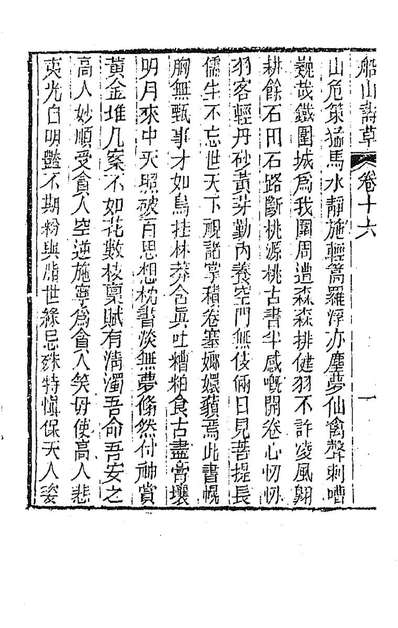 船山詩草 卷十六 一
山危策猛馬水靜施輕篙羅浮亦塵夢仙禽聲刺嘈
巍哉鐵圍城爲我圍周遭森森排健羽不許凌風翺
耕餘石田石路斷桃源桃古書半感慨開卷心忉忉
羽客輕丹砂黃芽勤內養空門無伎倆日見菩提長
儒生不忘世天下視諸掌積卷塞嫏嬛藐焉此書幌
胸無甄事才如鳥挂林莽含眞吐糟粕食古盡膏壤
明月來中天照破百思想枕書淡無夢翛然付神賞
黃金堆几案不如花數枝稟賦有淸濁吾命吾安之
高人妙順受貪人空逆施寧爲貪人笑毋使高人悲
夷光自明豔不期粉與脂世緣忌殊特愼保天人姿